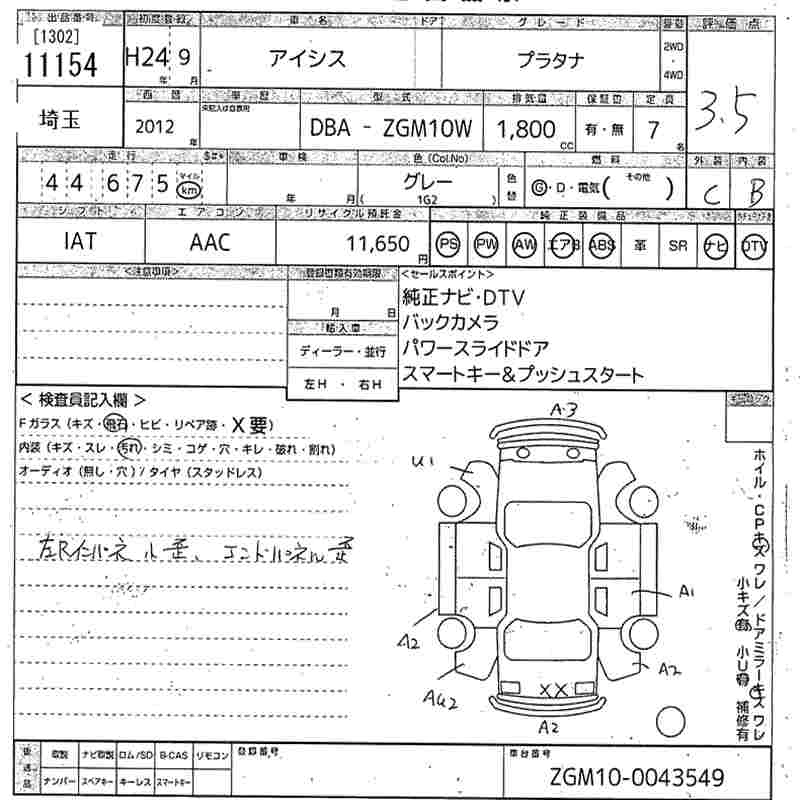 出品番号 初度登録 車名 ドア グレード 評価点
[1302]
11154 H24 9 アイシス プラタナ 2WD・4WD 3.5
年 月
西暦 車歴 型式 排気量 保証書 定員
埼玉 2012年 DBA - ZGM10W 1,800cc 有・無 7名
走行 車検 色(Col.No) 燃料 外装 内装
44675 マイル km 年 月 グレー 色替 G・D・電気( その他 ) C B
( 1G2 )
シフト エアコン リサイクル預託金 純正装備品
IAT AAC 11,650円 PS PW AW エアB ABS 革 SR ナビ DTV
<注意事項> 登録書類有効期限 <セールスポイント>
月 日 純正ナビ・DTV
輸入車 バックカメラ
ディーラー・並行 パワースライドドア
左H ・ 右H スマートキー&プッシュスタート
<検査員記入欄>
Fガラス(キズ・飛石・ヒビ・リペア跡・X要)
内装(キズ・スレ・汚れ・シミ・コゲ・穴・キレ・破れ・割れ)
オーディオ(無し・穴)/タイヤ(スタッドレス)
A-3
U1
左Rインパネル歪、エンドパネル歪
A1
A2
A2
AU2
XX
A2
ホイル・CPキズワレ/ドアミラーキズワレ
小キズ有 小U有 補修有
後送品 取説 ナビ取説 ロム/SD B-CAS リモコン 登録番号 車台番号
ナンバー スペアキー キーレス スマートキー ZGM10-0043549